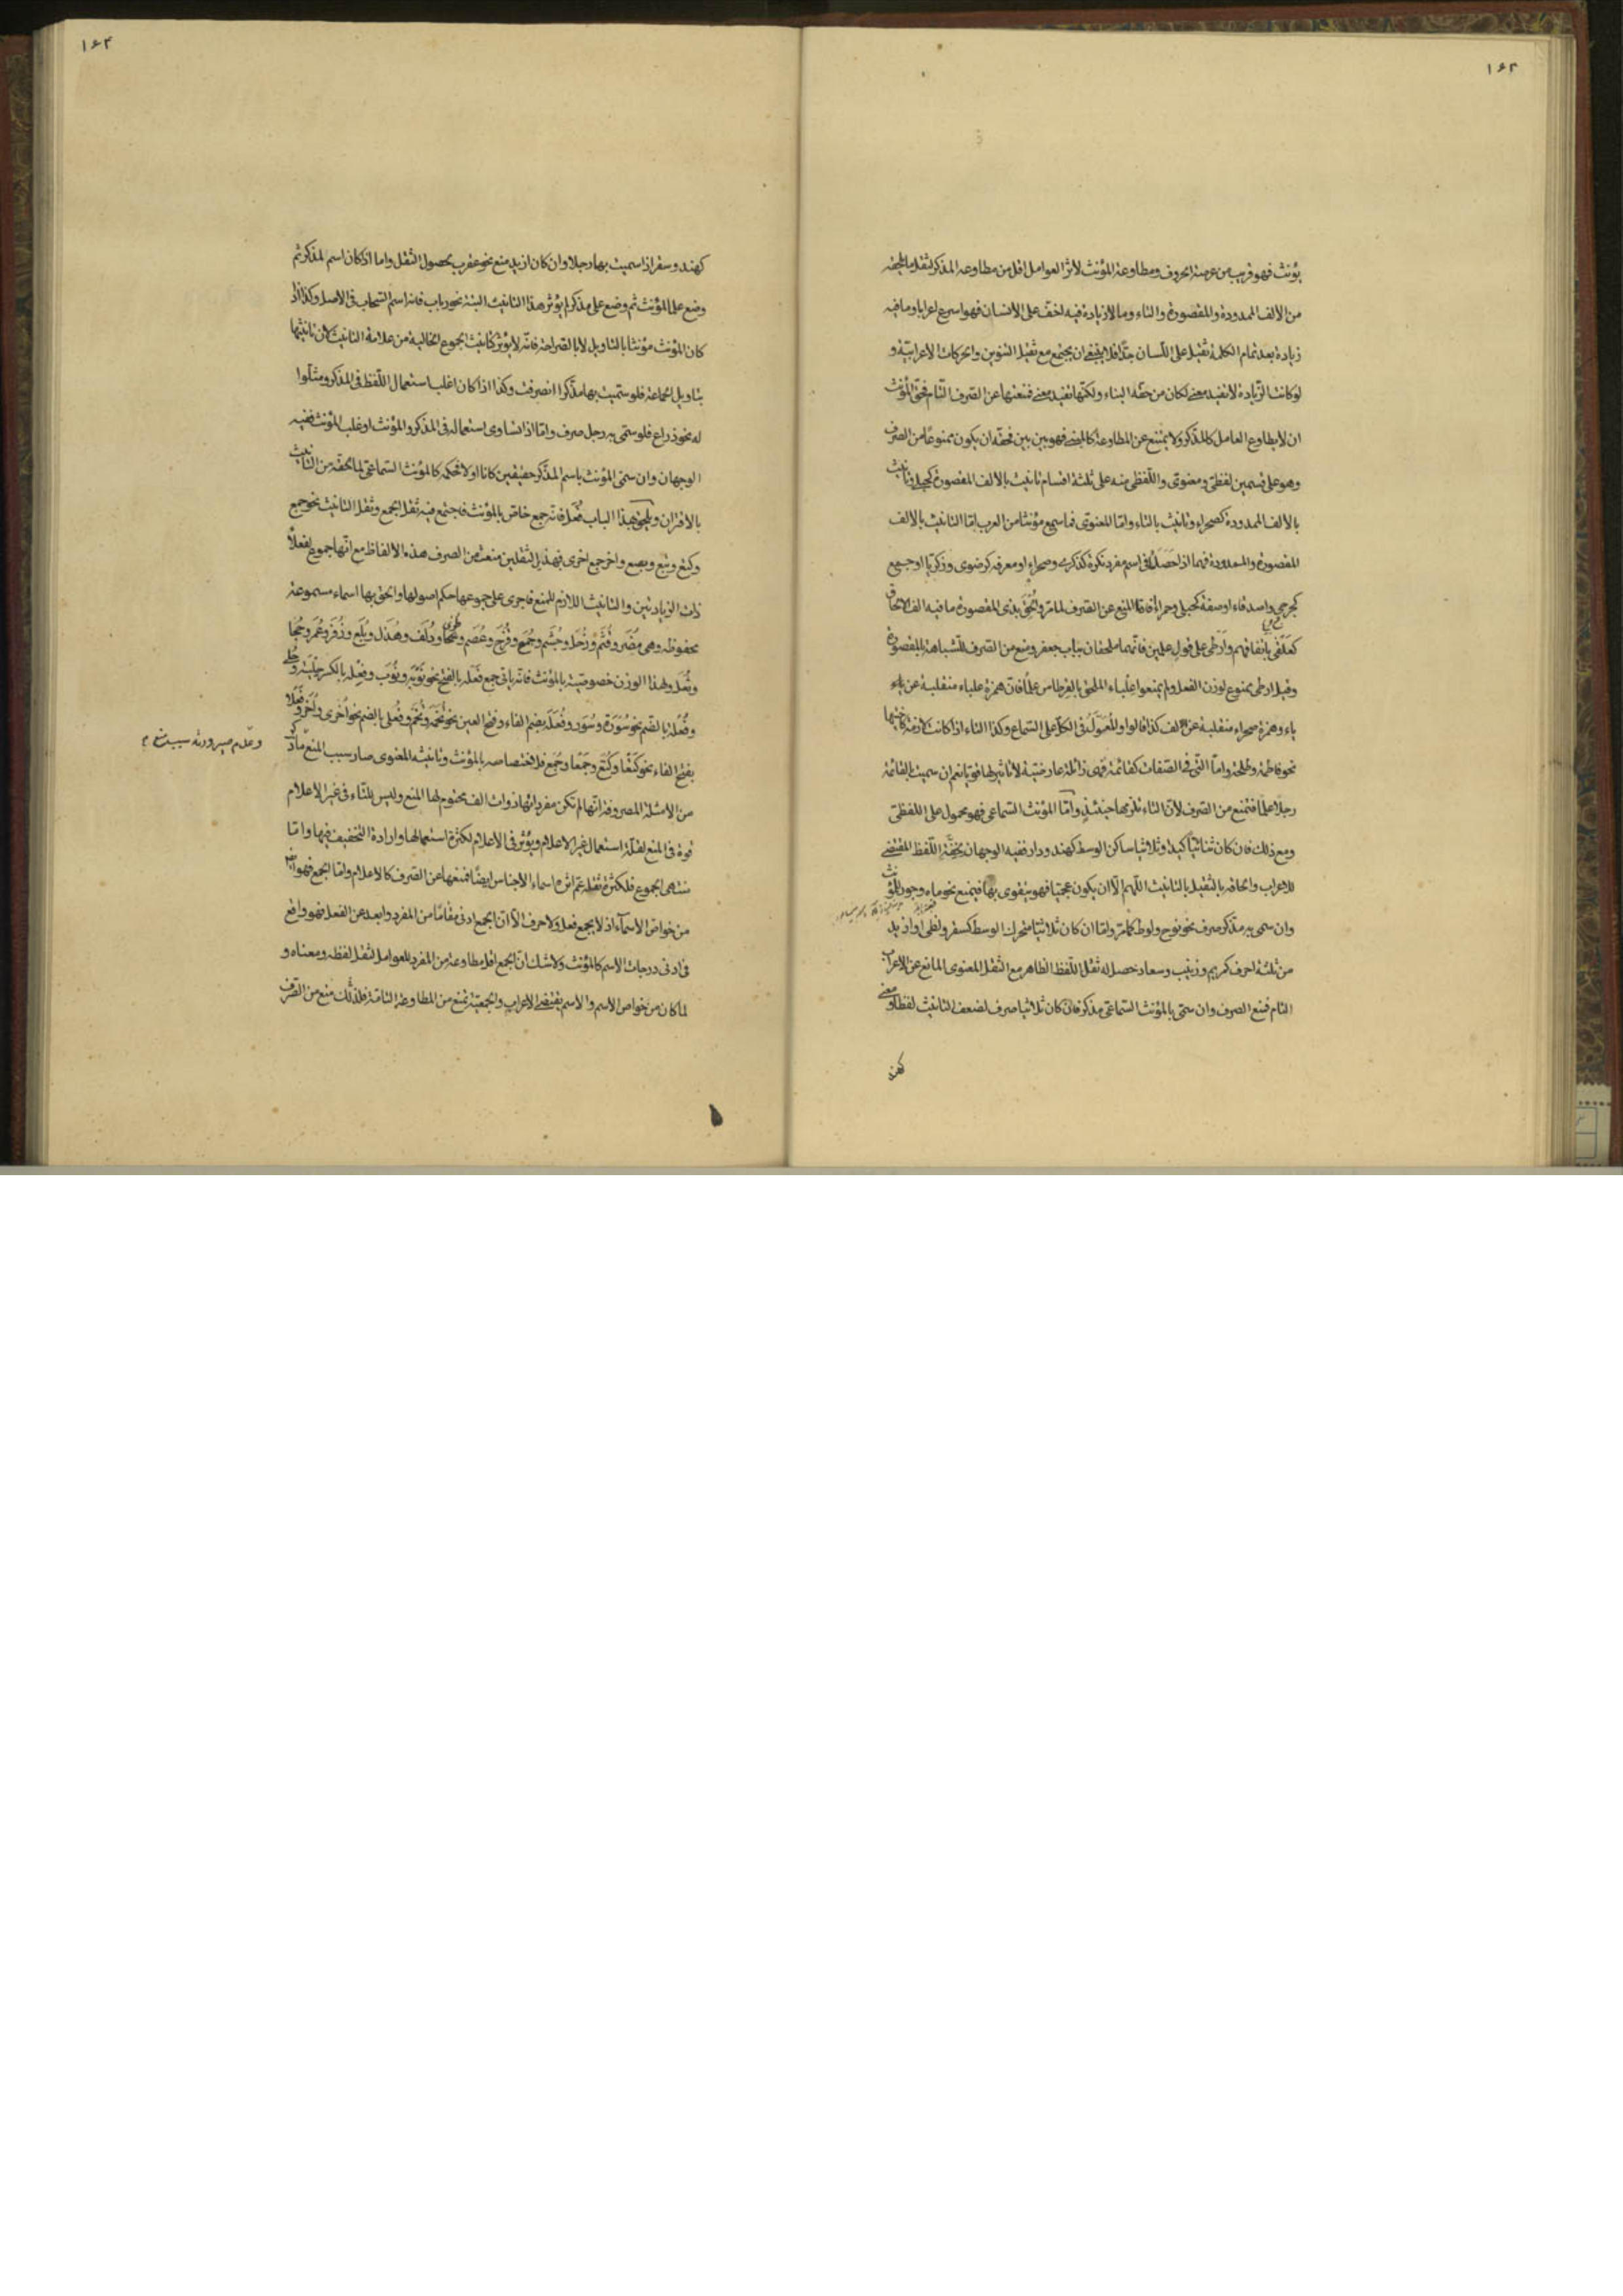 ١٦٣
يؤنث فهو قريب من عرصة الحروف ومطاوعة المؤنث لأثر العوامل اقل من مطاوعة المذكر لثقل ما يلحقه
من الالف الممدودة والمقصورة والتاء وما لا زيادة فيه اخف على الانسان فهو اسرع اعرابا وما فيه
زيادة بعد تمام الكلمة ثقيل على اللسان جدّا فلا ينبغي ان يجتمع مع ثقيل التنوين والحركات الاعرابيّة و
لو كانت الزيادة لا تفيد معنى لكان من حقّه البناء ولكنّها تفيد معنى فتمنعها عن الصرف التّام فحقّ المؤنث
ان لا يطاوع العامل كالمذكر ولا يمتنع عن المطاوعة فهو بين بين فحقّه ان يكون ممنوعًا من الصرف
وهو على قسمين لفظىّ ومعنوىّ واللّفظى منه على ثلثة اقسام تأنيث بالالف المقصورة كحبلى وتأنيث
بالالف الممدودة كصحراء وتأنيث بالتاء وامّا المعنوىّ فما سمع مؤنثا من العرب امّا التانيث بالالف
المقصورة والممدودة فهما اذا حصلا فى اسم مفرد نكرة كذكرى وصحراء او معرفة كرضوى وزكريّا او جمع
كجرحى واصدقاء او صفة كحبلى وحمراء المنع عن الصّرف لما مرّ والحق بذى المقصورة ما فيه الف الالحاق
كعلقى باتفاقهم وارطى على قول علمين فانّهما ملحقان بباب جعفر ومنع من الصّرف للشباهة بالمقصورة
وقيل ارطى ممنوع لوزن الفعل ولم يمنعوا علباء الملحق بالقرطاس علمًا فانّ همزة علباء منقلبة عن ياء
ياء وهمزة صحراء منقلبة عن الف كذا قالوا والمعوّل فى الكلّ على السّماع وكذا التاء اذا كانت لازمة
نحو فاطمة وطلحة وامّا الّتى فى الصّفات كقائمة فهى زائلة عارضيّة لا تاثير لها نعم ان سميت بالقائمة
رجلا علمًا فتمنع من الصّرف لانّ التاء تلزمها حينئذٍ وامّا المؤنث السّماعى فهو محمول على اللفظىّ
ومع ذلك فان كان ثنائيّا كيد او ثلاثيا ساكن الوسط كهند ودار ففيه الوجهان لخفّة اللّفظ المقتضى
للاعراب والحاقه بالثقيل بالتانيث اللّهم الّا ان يكون عجميّا فهو يتقوى بها فيمنع نحو ماه وجور للمؤنث
وان سمى به مذكر صرف نحو نوح ولوط كما مرّ وامّا ان كان ثلاثيّا متحرك الوسط كسقر ولظى او ازيد
من ثلثة احرف كمريم وزينب وسعاد حصل له ثقل اللّفظ الظاهر مع الثقل المعنوى المانع عن الاعراب
التام فمنع الصرف وان سمّى بالمؤنث السّماعى مذكر فان كان ثلاثيا صرف لضعف التانيث لفظا ومعنى
كهند
١٦٤
كهند وسقر اذا سميت بها رجلا وان كان ازيد منع نحو عقرب لحصول الثقل واما اذا كان اسم لمذكر ثم
وضع علما لمؤنث ثم وضع على مذكر لم يؤثر هذا التانيث البتة نحو رباب فانه اسم السّحاب فى الاصل وكذا اذا
كان المؤنث مؤنثا بالتاويل لا بالصّراحة فانّه لا يؤثر كتانيث الجموع الخالية من علامة التانيث لان تانيثها
بتاويل الجماعة فلو سمّيت بها مذكّرا انصرفت وكذا اذا كان اغلب استعمال اللّفظ فى المذكر ومثّلوا
له نحو ذراع فلو سمّى به رجل صرف وامّا اذا تساوى استعماله فى المذكر والمؤنث او غلب المؤنث ففيه
الوجهان وان سمّى المؤنث باسم المذكّر حقيقين كانا او لا فحكمه كالمؤنث السّماعىّ لما يحقّه من التانيث
بالاقتران ويلحق بهذا الباب فُعَل فانّه جمع خاصّ بالمؤنث فاجتمع فيه ثقل الجمع وثقل التانيث نحو جمع
وكتع وبتع وبصع واخر جمع اخرى فهذان الثقلين منعت من الصرف هذه الالفاظ مع انّها جموع لفعلاء
ذات الزيادتين والتانيث اللازم للمنع فاجرى على جموعها حكم اصولها والحق بها اسماء مسموعة
محفوظة وهى مُضَر وقُثَم وزُحَل وجُشَم وجُمَح وقُزَح وعُصَم وجُحا ودُلَف وهُذَل وبُلَع وزُفَر وعُمَر
وثُعَل ولهذا الوزن خصوصيّة بالمؤنث فانّه ياتى جمع فَعلة بالفتح نحو نَوْبَة ونُوَب وفِعلة بالكسر
وفُعْلة بالضّم نحو سُورَة وسُوَر وفُعَلَة بضم الفاء وفتح العين نحو تُخَمَة وتُخَم وفُعلى بالضم نحو اُخرى واُخَر وفَعلاء
بفتح الفاء نحو كتعا وكُتَع وجَمْعا وجُمَع فلاختصاصه بالمؤنث وتانيثه المعنوى صار سبب المنع
وعدم صيرورته سبب منع م
من الامثلة المصروفة انّها لم تكن مفرداتها ذوات الف محتوم لها المنع وليس للتاء فى غير الاعلام
قوة فى المنع لقلّة استعمال غير الاعلام ويؤثر فى الاعلام لكثرة استعمالها وارادة التخفيف فيها وامّا
منتهى الجموع فلكثرة ثقله عمّ اثره اسماء الاجناس ايضًا فمنعها عن الصّرف كالاعلام وامّا الجمع فهو
من خواصّ الاسماء اذ لا يجمع فعل ولا حرف الّا انّ الجمع ادنى مقامًا من المفرد وابعد عن الفعل فهو واقع
فى ادنى درجات الاسم كالمؤنث ولا شك ان الجمع اقل مطاوعة من المفرد للعوامل لثقل لفظه ومعناه و
لما كان من خواص الاسم والاسم يقتضى الاعراب والجمعيّة تمنع من المطاوعة التامّة فلذلك منع من الصّرف